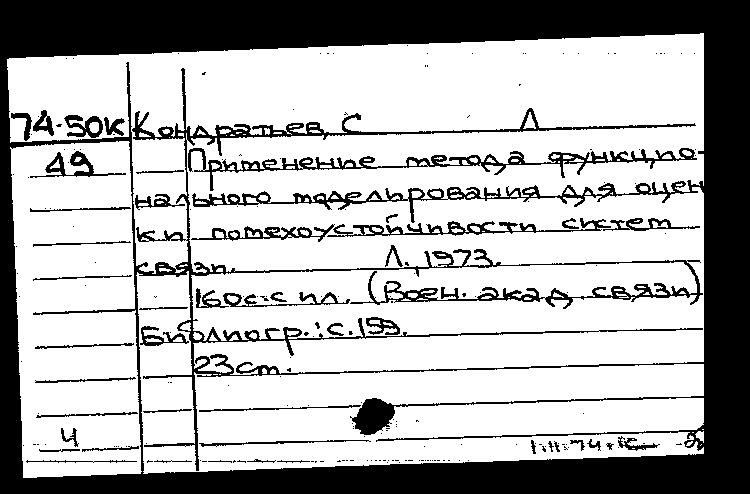 74-50К Кондратьев, С Л
49 Применение метода функцио-
нального моделирования для оцен
ки помехоустойчивости систем
связи. Л., 1973.
160с. с ил. (Воен. акад связи)
Библиогр.: с. 159.
23 ст.
Ч